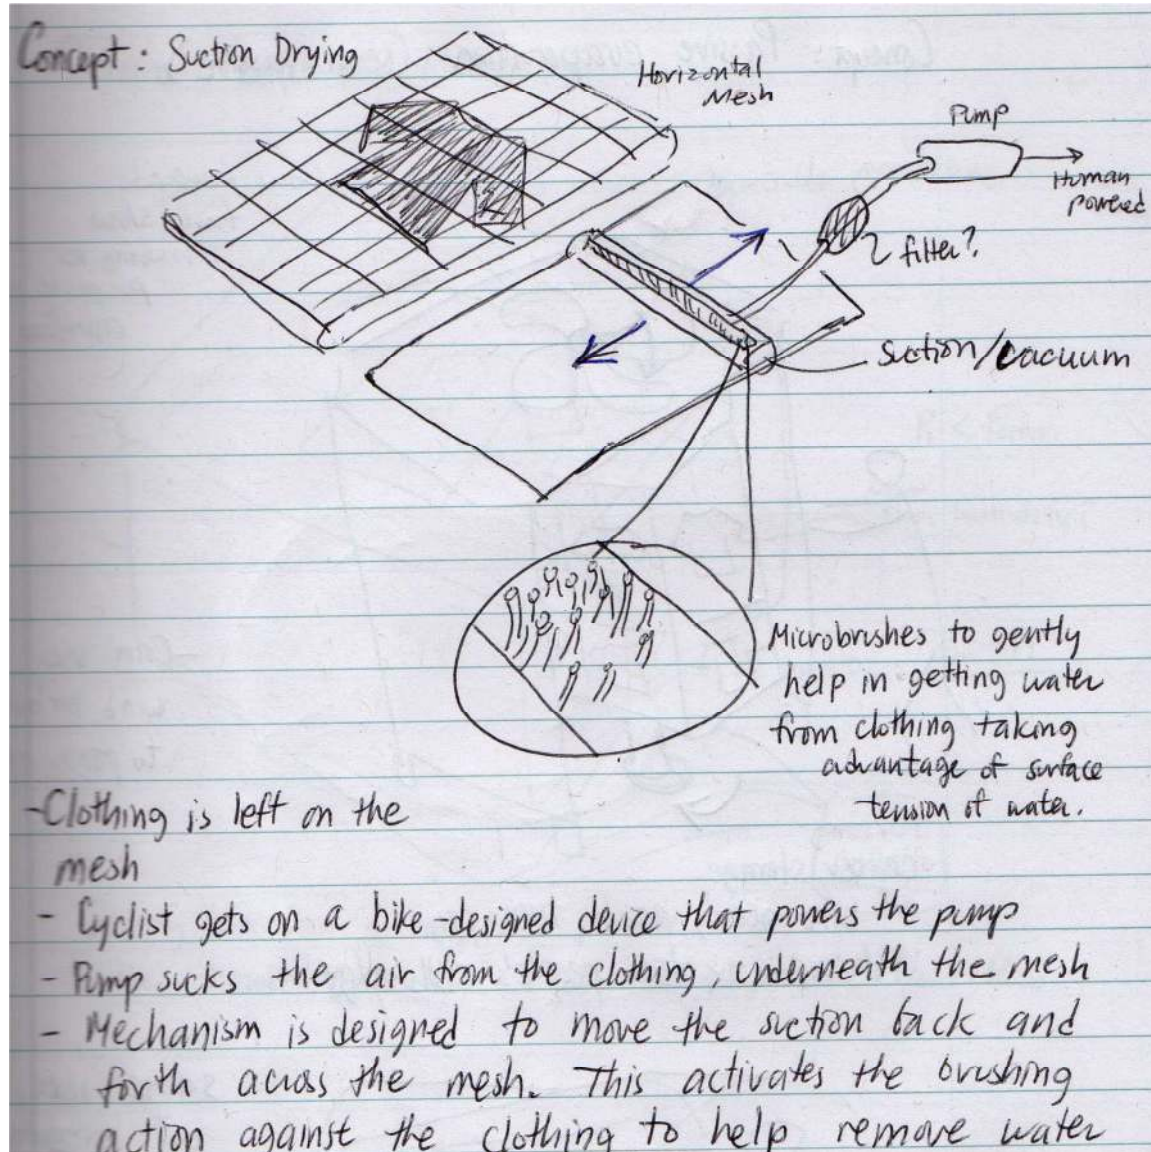 Concept: Suction Drying
Horizontal
Mesh
Pump
Human
powered
filter?
suction/vacuum
Microbrushes to gently
help in getting water
from clothing taking
advantage of surface
tension of water.
- Clothing is left on the
mesh
- Cyclist gets on a bike-designed device that powers the pump
- Pump sucks the air from the clothing, underneath the mesh
- Mechanism is designed to move the suction back and
forth across the mesh. This activates the brushing
action against the clothing to help remove water